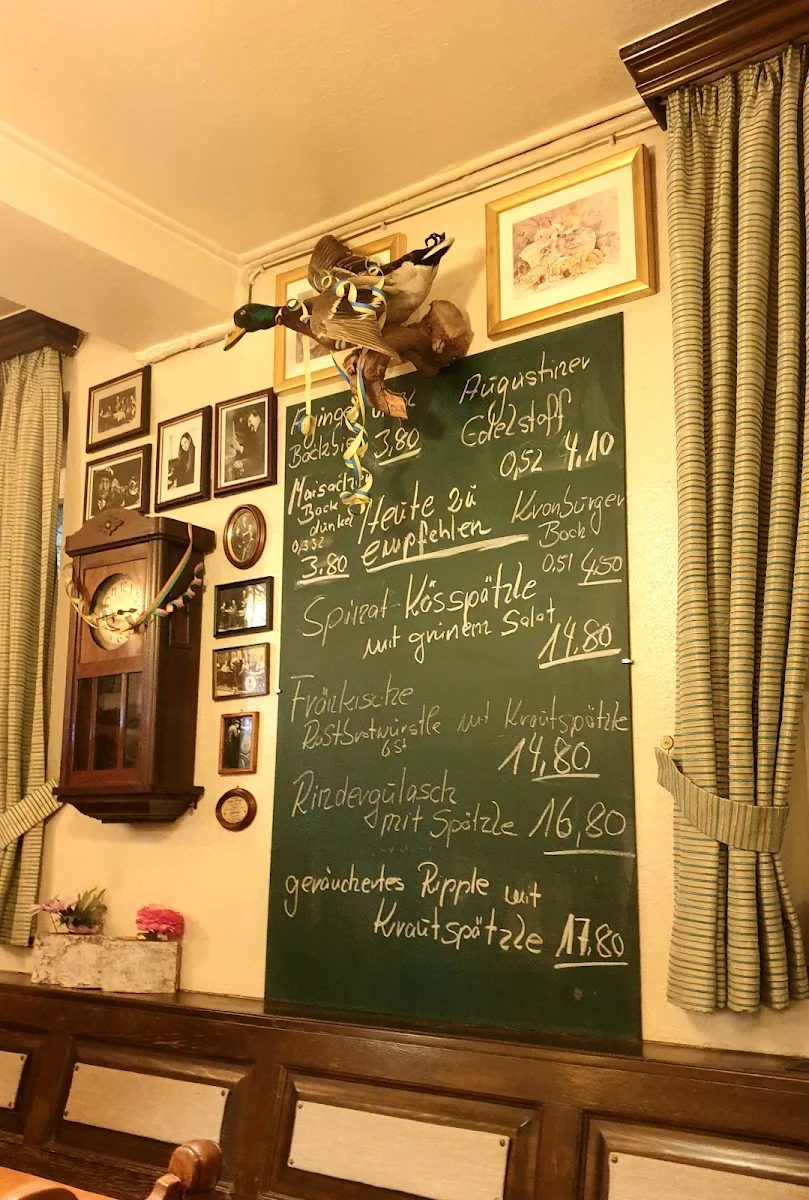 Augustiner
Edelstoff
0,5l 4,10
3,80
Maisacher
Bock
dunkel
0,33l
3,80
Heute zu
empfehlen
Kronburger
Bock
0,5l 4,50
Spinat-Kässpätzle
mit grünem Salat
14,80
Fränkische
Rostbratwürstle mit Krautspätzle
6 St
14,80
Rindergulasch
mit Spätzle 16,80
geräuchertes Ripple mit
Krautspätzle 17,80